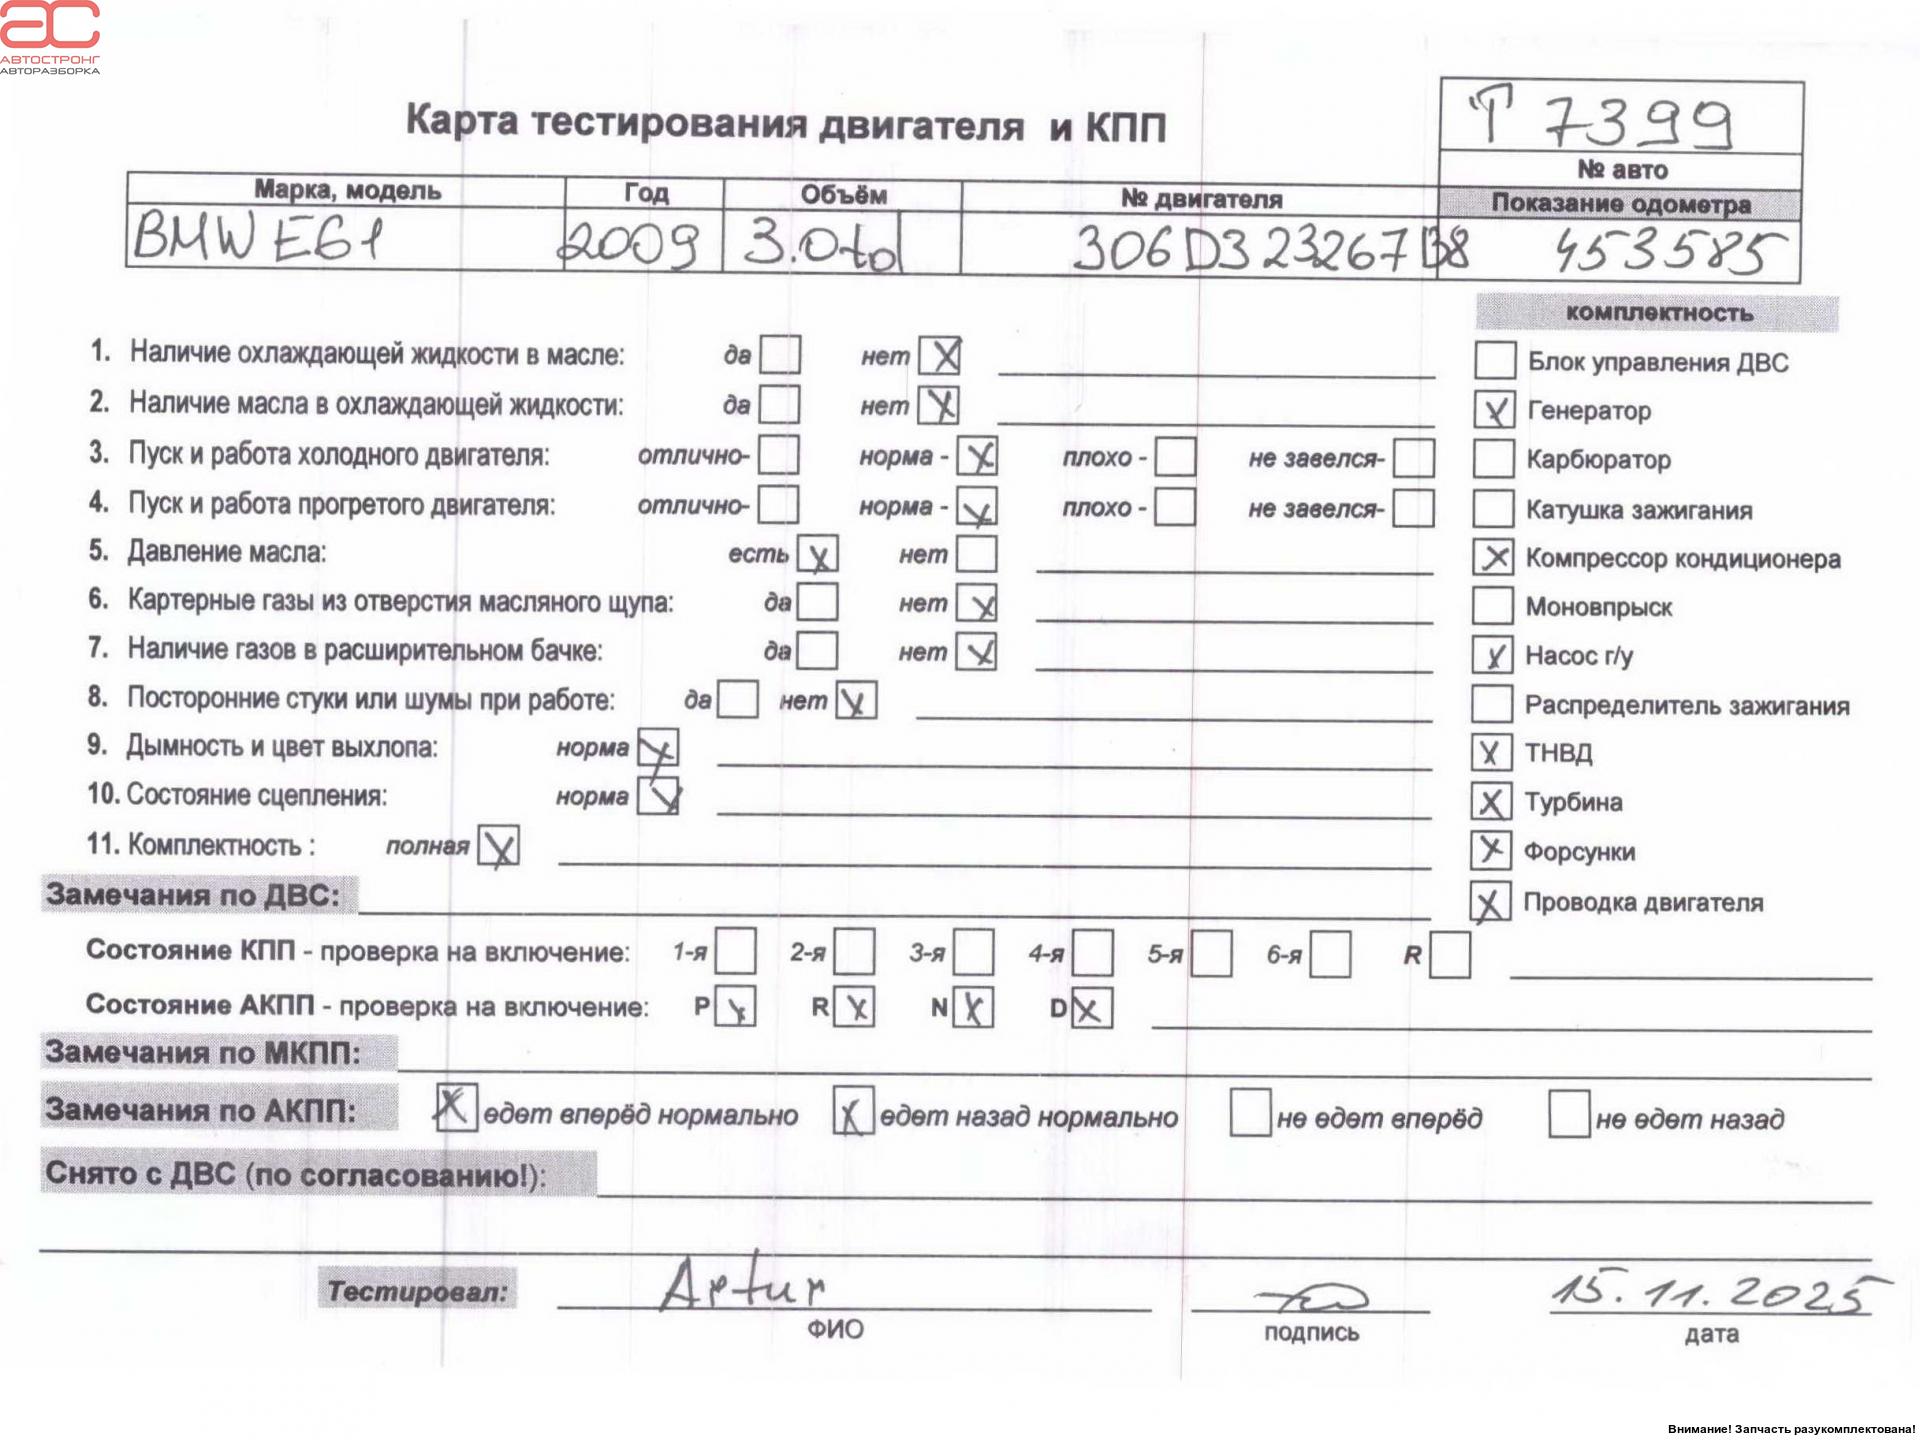 ас
АВТОСТРОНГ
АВТОРАЗБОРКА
Карта тестирования двигателя и КПП
T 7399
№ авто
Марка, модель Год Объём № двигателя Показание одометра
BMW E61 2009 3.0td 306D3 23267138 453585
комплектность
1. Наличие охлаждающей жидкости в масле: да нет X
Блок управления ДВС
2. Наличие масла в охлаждающей жидкости: да нет X
X Генератор
3. Пуск и работа холодного двигателя: отлично- норма - X плохо - не завелся-
Карбюратор
4. Пуск и работа прогретого двигателя: отлично- норма - X плохо - не завелся-
Катушка зажигания
5. Давление масла: есть X нет
X Компрессор кондиционера
6. Картерные газы из отверстия масляного щупа: да нет X
Моновпрыск
7. Наличие газов в расширительном бачке: да нет X
X Насос г/у
8. Посторонние стуки или шумы при работе: да нет X
Распределитель зажигания
9. Дымность и цвет выхлопа: норма X
X ТНВД
10. Состояние сцепления: норма X
X Турбина
11. Комплектность : полная X
X Форсунки
Замечания по ДВС:
X Проводка двигателя
Состояние КПП - проверка на включение: 1-я 2-я 3-я 4-я 5-я 6-я R
Состояние АКПП - проверка на включение: P X R X N X D X
Замечания по МКПП:
Замечания по АКПП: X едет вперёд нормально X едет назад нормально не едет вперёд не едет назад
Снято с ДВС (по согласованию!):
Тестировал: Artur 15.11.2025
ФИО подпись дата
Внимание! Запчасть разукомплектована!